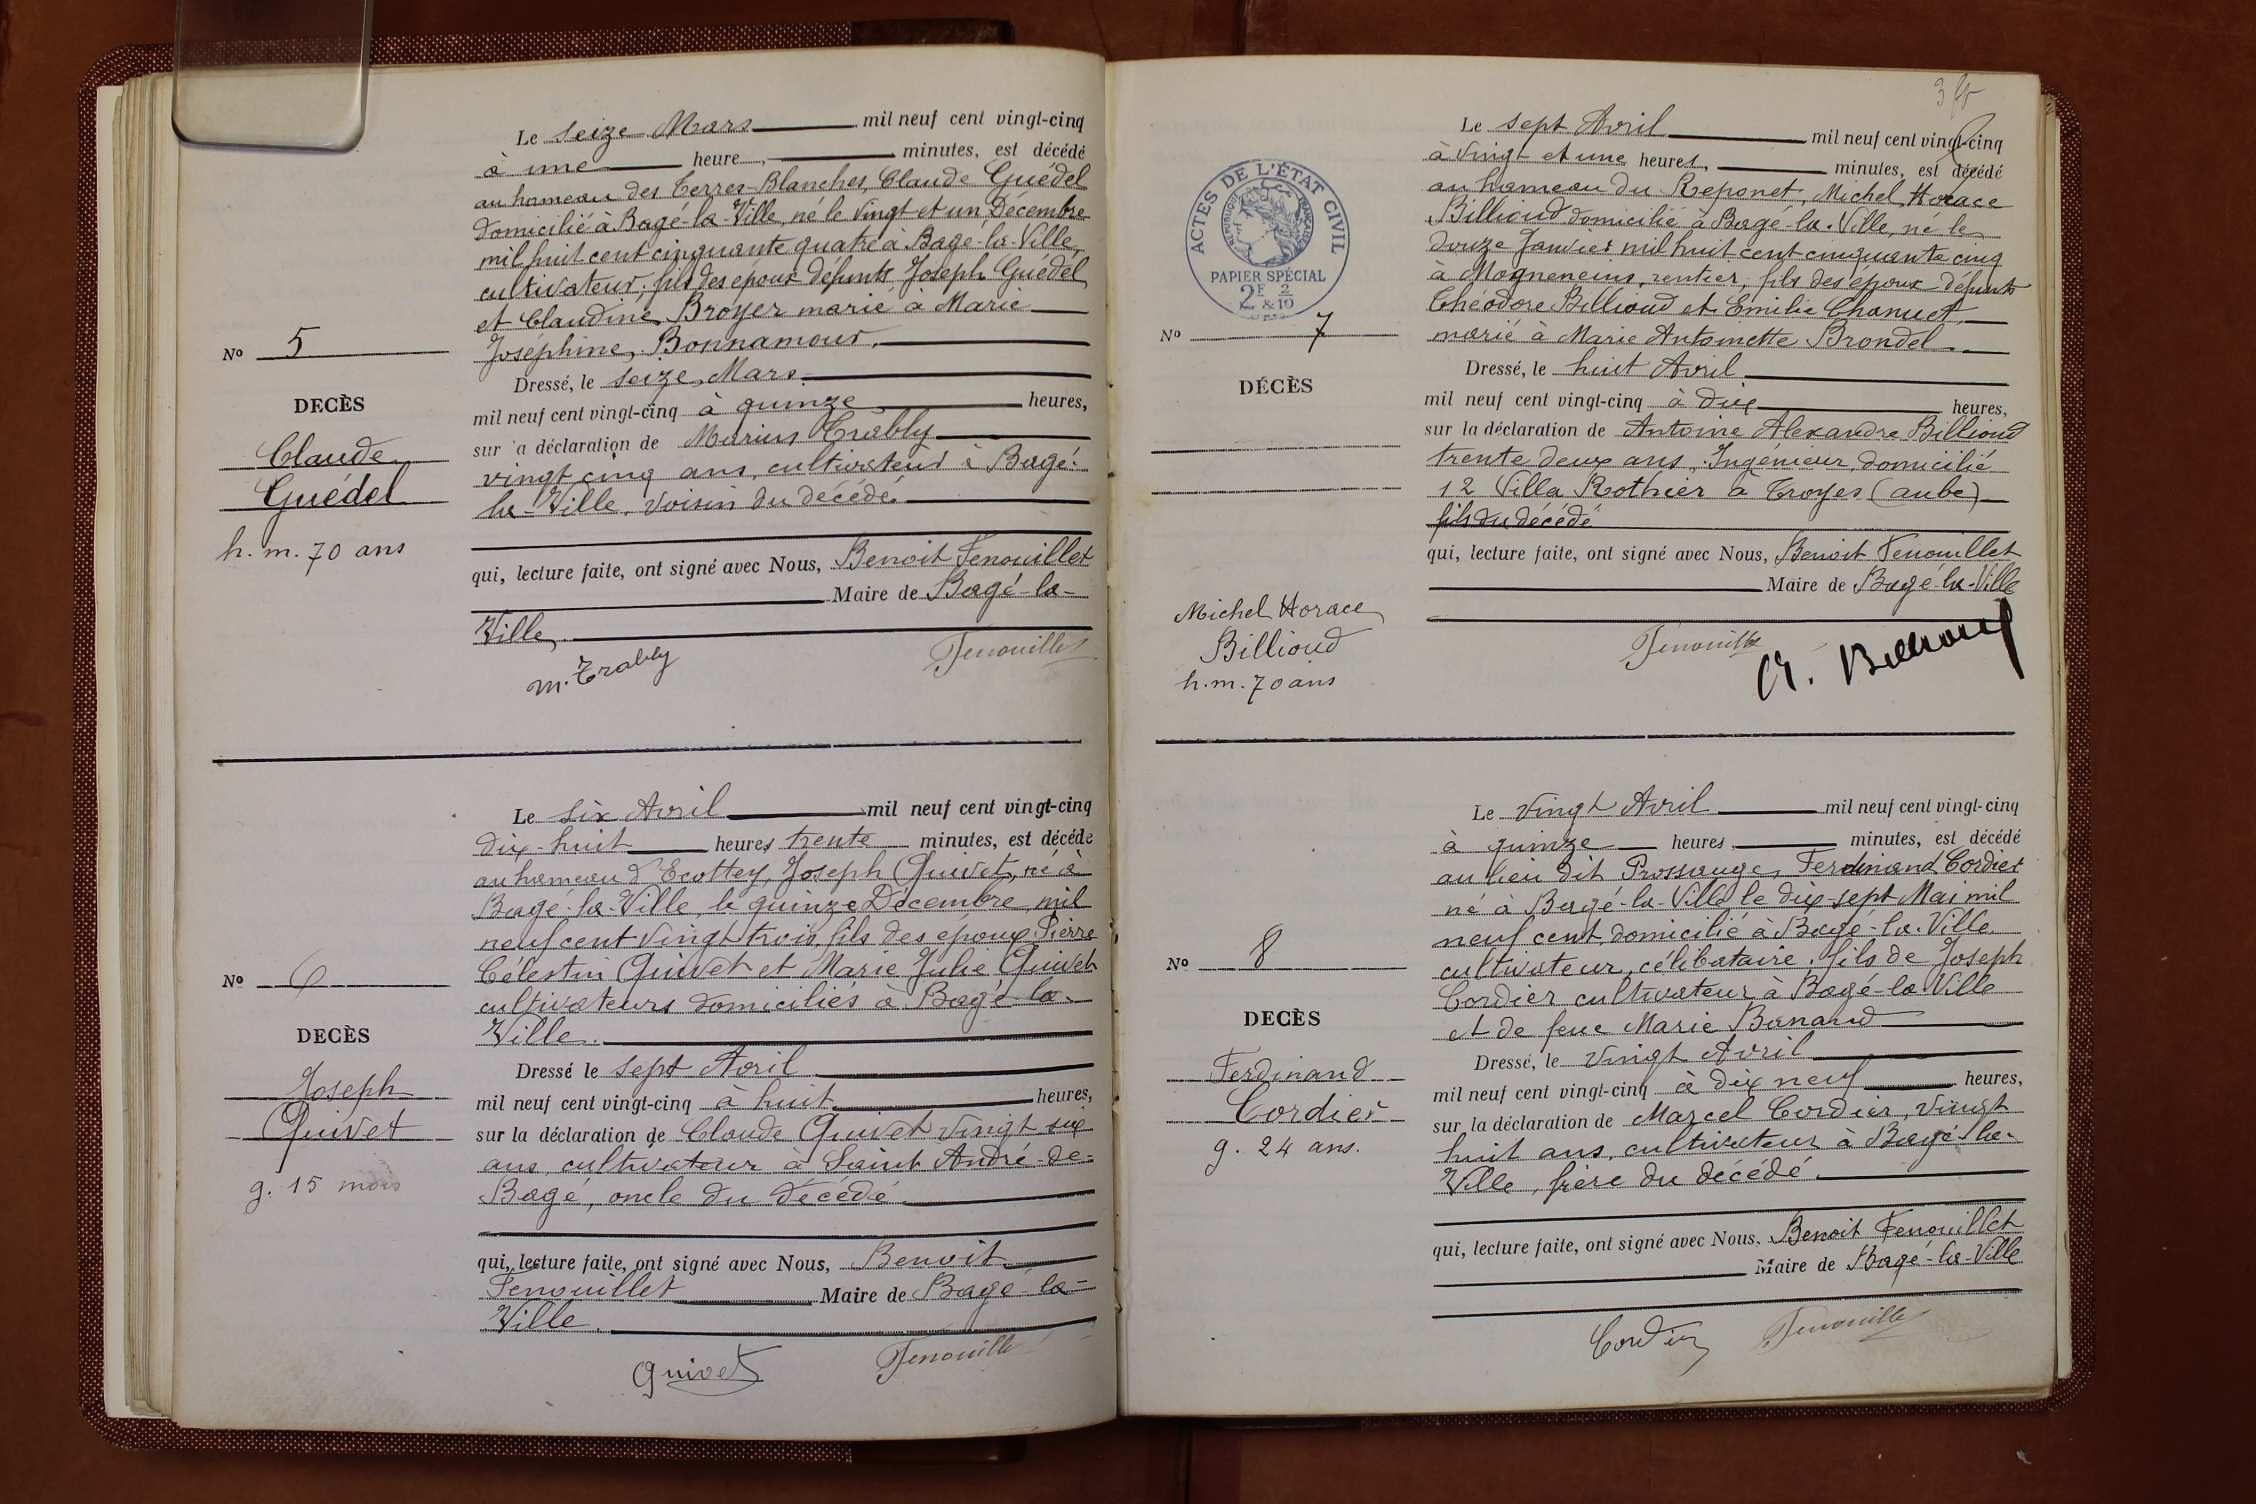 Le seize Mars mil neuf cent vingt-cinq
à une heure, minutes, est décédé
au hameau des Terres-Blanches, Claude Guédel
domicilié à Bagé-la-Ville, né le vingt et un Décembre
mil huit cent cinquante quatre à Bagé-la-Ville,
cultivateur, fils des époux défunts Joseph Guédel
et Claudine Broyer marié à Marie
Joséphine Bonnamour.
No 5
DECÈS
Claude
Guédel
h. m. 70 ans
Dressé, le seize Mars
mil neuf cent vingt-cinq à quinze heures,
sur la déclaration de Marius Trably
vingt cinq ans, cultivateur à Bagé-
la-Ville, voisin du décédé.
qui, lecture faite, ont signé avec Nous, Benoit Fenouillet
Maire de Bagé-la-
Ville.
M. Trably Fenouillet
Le six Avril mil neuf cent vingt-cinq
dix-huit heures trente minutes, est décédé
au hameau d'Ecottey, Joseph Quivet, né à
Bagé-la-Ville, le quinze Décembre mil
neuf cent vingt trois, fils des époux Pierre
Célestin Quivet et Marie Julie Quivet
cultivateurs domiciliés à Bagé-la-
Ville.
No 6
DECÈS
Joseph
Quivet
g. 15 mois
Dressé le sept Avril
mil neuf cent vingt-cinq à huit heures,
sur la déclaration de Claude Quivet vingt six
ans, cultivateur à Saint André-de-
Bagé, oncle du décédé
qui, lecture faite, ont signé avec Nous, Benoit
Fenouillet Maire de Bagé-la-
Ville.
Quivet Fenouillet
ACTES DE L'ÉTAT CIVIL
RÉPUBLIQUE FRANÇAISE
PAPIER SPÉCIAL
2F & 2/10
Le sept Avril mil neuf cent vingt-cinq
à vingt et une heures, minutes, est décédé
au hameau du Reponet, Michel Horace
Billioud domicilié à Bagé-la-Ville, né le
douze Janvier mil huit cent cinquante cinq
à Mogneneins, rentier, fils des époux défunts
Théodore Billioud et Emilie Chanuet,
marié à Marie Antoinette Brondel.
No 7
DÉCÈS
Michel Horace
Billioud
h. m. 70 ans
Dressé, le huit Avril
mil neuf cent vingt-cinq à dix heures,
sur la déclaration de Antoine Alexandre Billioud
trente deux ans, Ingénieur, domicilié
12 Villa Rothier à Troyes (aube)
fils du décédé
qui, lecture faite, ont signé avec Nous, Benoit Fenouillet
Maire de Bagé-la-Ville
Fenouillet A. Billioud
Le vingt Avril mil neuf cent vingt-cinq
à quinze heures, minutes, est décédé
au lieu dit Prossange, Ferdinand Cordier
né à Bagé-la-Ville le dix-sept Mai mil
neuf cent, domicilié à Bagé-la-Ville
cultivateur, célibataire, fils de Joseph
Cordier cultivateur à Bagé-la-Ville
et de feue Marie Banand
No 8
DECÈS
Ferdinand
Cordier
g. 24 ans.
Dressé, le vingt Avril
mil neuf cent vingt-cinq à dix neuf heures,
sur la déclaration de Marcel Cordier, vingt
huit ans, cultivateur à Bagé-la-
Ville, frère du décédé
qui, lecture faite, ont signé avec Nous, Benoit Fenouillet
Maire de Bagé-la-Ville
Cordier Fenouillet